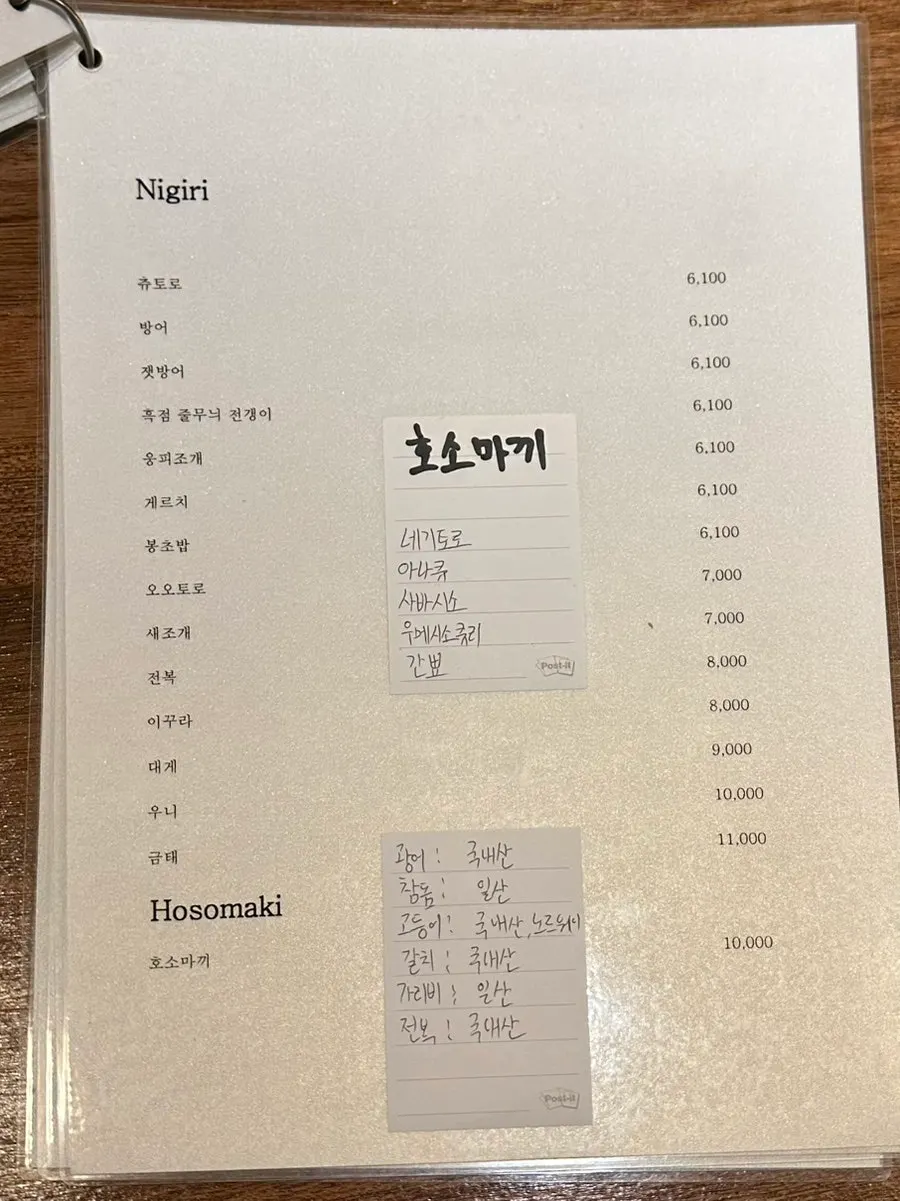 Nigiri
츄토로 6,100
방어 6,100
잿방어 6,100
흑점 줄무늬 전갱이 6,100
웅피조개 6,100
게르치 6,100
봉초밥 6,100
오오토로 7,000
새조개 7,000
전복 8,000
이꾸라 8,000
대게 9,000
우니 10,000
금태 11,000
Hosomaki
호소마끼 10,000
호소마끼
네기토로
아나큐
사바시소
우메시소큐리
간뾰
Post-it
광어 : 국내산
참돔 : 일산
고등어 : 국내산, 노르웨이
갈치 : 국내산
가리비 : 일산
전복 : 국내산
Post-it